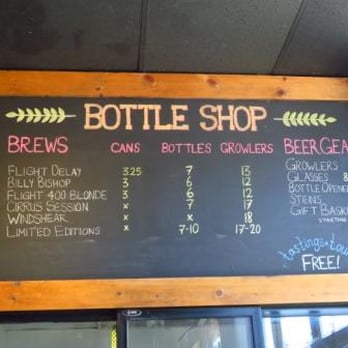 BOTTLE SHOP
BREWS CANS BOTTLES GROWLERS BEER GEA
FLIGHT DELAY 3.25 7 13
BILLY BISHOP 3 6 12
FLIGHT 400 BLONDE 3 6 12
CIRRUS SESSION x 7 17
WINDSHEAR x x 18
LIMITED EDITIONS x 7-10 17-20
GROWLERS
GLASSES &
BOTTLE OPENE
STEINS
GIFT BASK
STARTING
tastings + tou
FREE!